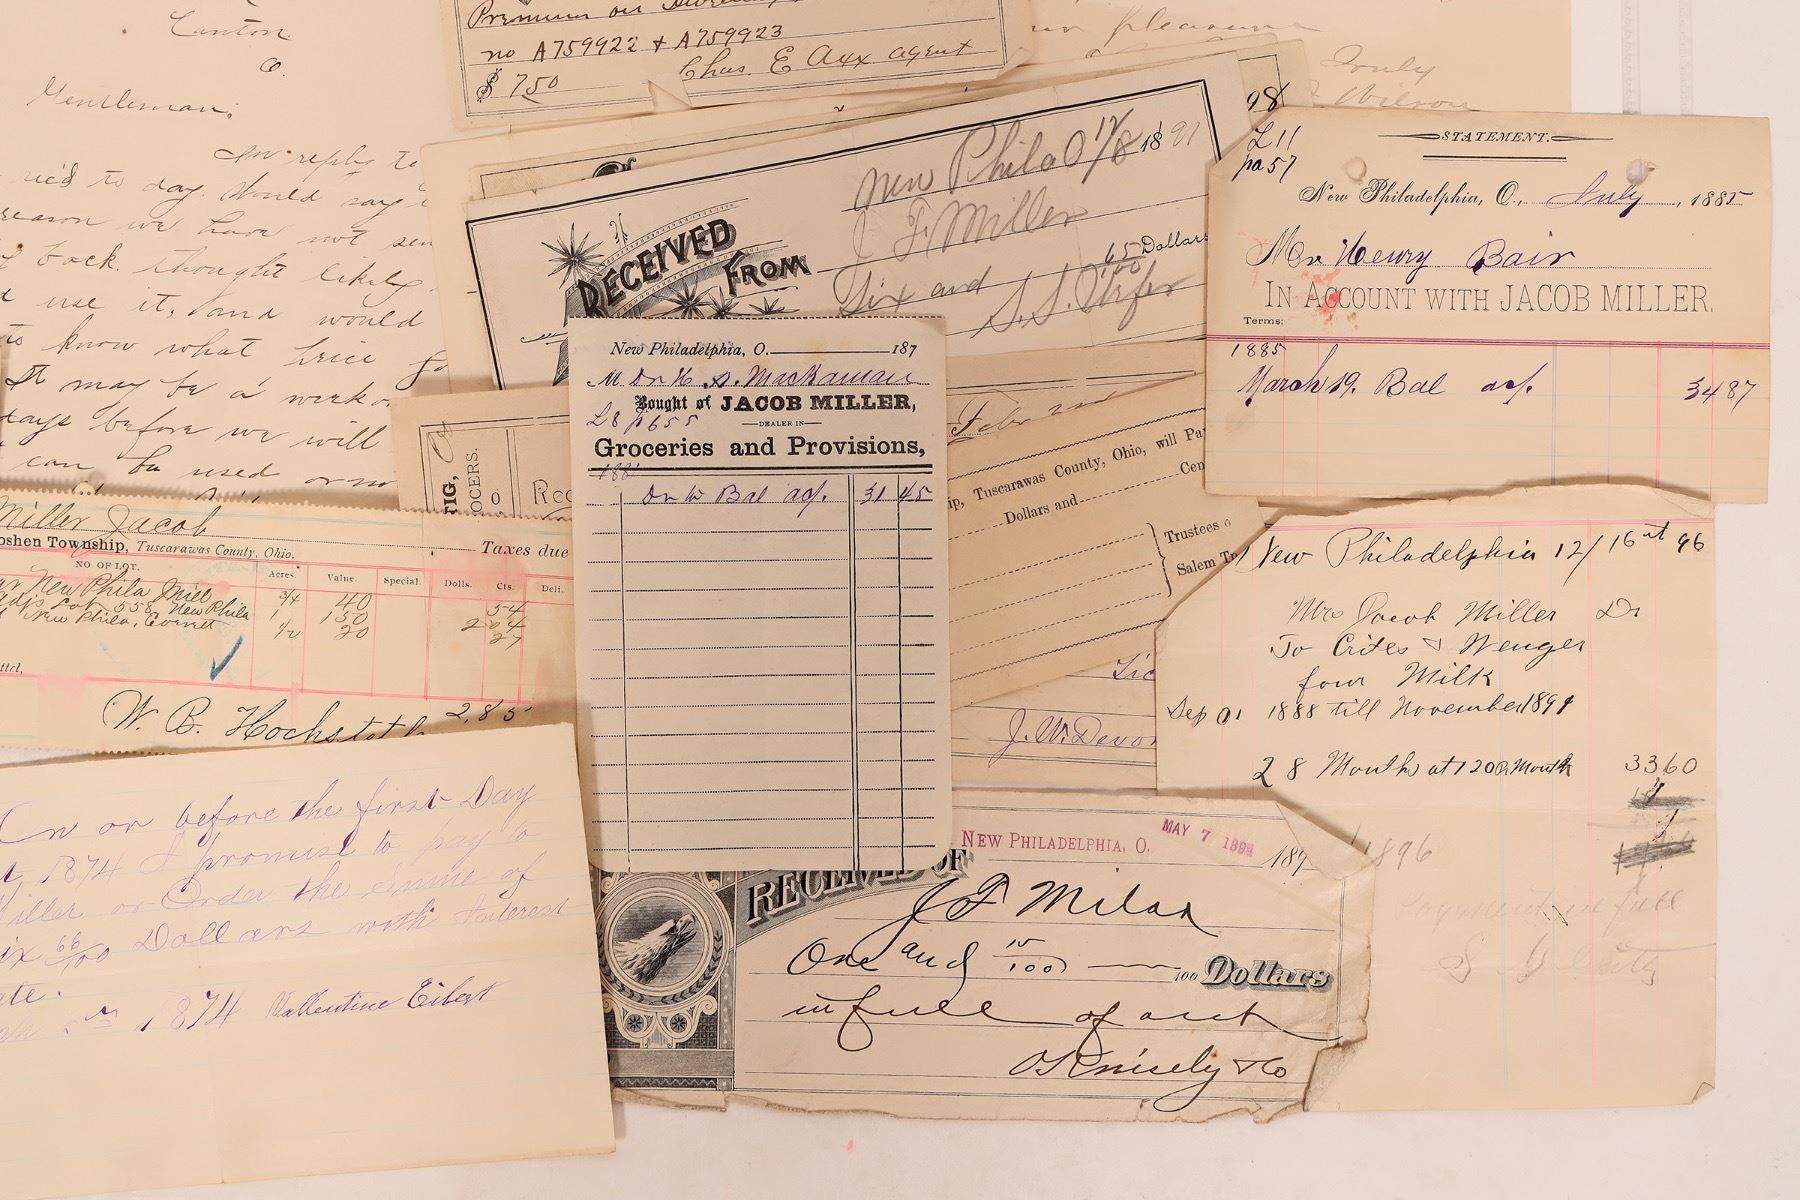 Canton
O.
Gentleman;
In reply to
to day. Would say
reason we have not sen
back. thought likely
use it, and would
to know what price
It may be a week o
days before we will
can be used or no
Premium on
no A759922 + A759923
$7.50 Chas. E Axx agent
pleasure
Truly
Wilson
98
New Phila O 12/8 1891
RECEIVED FROM
J F Miller
Six and 65/100 Dollars
L11
pa 57
STATEMENT.
New Philadelphia, O., July, 1885
Mr Henry Bair
IN ACCOUNT WITH JACOB MILLER.
Terms:
1885
March 19. Bal acf. 34 87
New Philadelphia, O. 187
M Dr H
Bought of JACOB MILLER,
L8 p655
DEALER IN
Groceries and Provisions,
188
Dr to Bal acf. 31 45
TIG,
OCERS.
o
Rec
Feb 2nd
ip, Tuscarawas County, Ohio, will Pa
Dollars and Cen
Trustees o
Salem T
Miller Jacob
oshen Township, Tuscarawas County, Ohio. Taxes due
NO OF LOT. Acres. Value. Special. Dolls. Cts. Deli.
New Phila Mill 3/4 40 54
Lot 558 New Phila 1 150 2 04
New Phila, Cornett 1/2 20 27
W. B. Hochstet 2,85
New Philadelphia 12/16 96
Mrs Jacob Miller Dr
To Crites & Wenger
four Milk
Sep 01 1888 till November 1891
28 Months at 120 P Month 33 60
1896
payment in full
J. W. Devo
On or before the first Day
1874 I promise to pay to
Miller or Order the Sume of
ix 66/100 Dollars with Interest
ate.
1874 Vallentine Eibert
NEW PHILADELPHIA, O. MAY 7 189
RECEIVED OF
J F Milar
One and 15/100 100 Dollars
in full of acct
O Knisely & Co